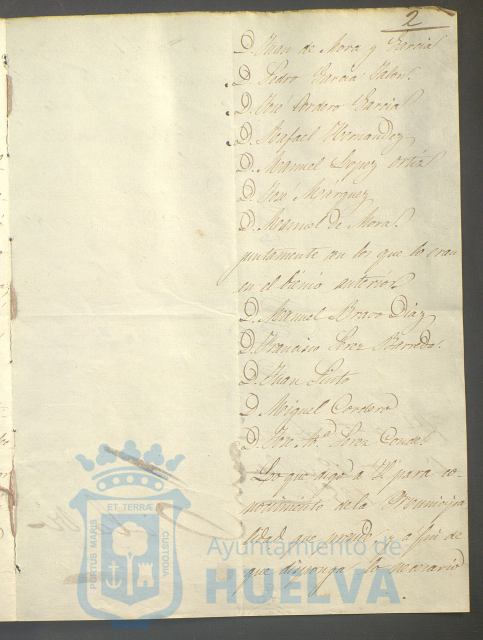 2
D. Juan de Mora y Garcia
D. Pedro Garcia
D. José Cordero Garcia
D. Rafael Hernandez
D. Manuel Lopez Ortiz
D. José Márquez
D. Manuel de Mora
juntamente con los que lo eran
en el bienio anterior
D. Manuel Bravo Diaz
D. Francisco Perez Barreda.
D. Juan Pinto
D. Miguel Cordero
D. José Mª Perez Conde
Lo que digo a V. para co-
nocimiento de la Municipa
lidad que preside y a fin de
que disponga lo necesario
PORTUS MARIS ET TERRÆ CUSTODIA
Ayuntamiento de
HUELVA